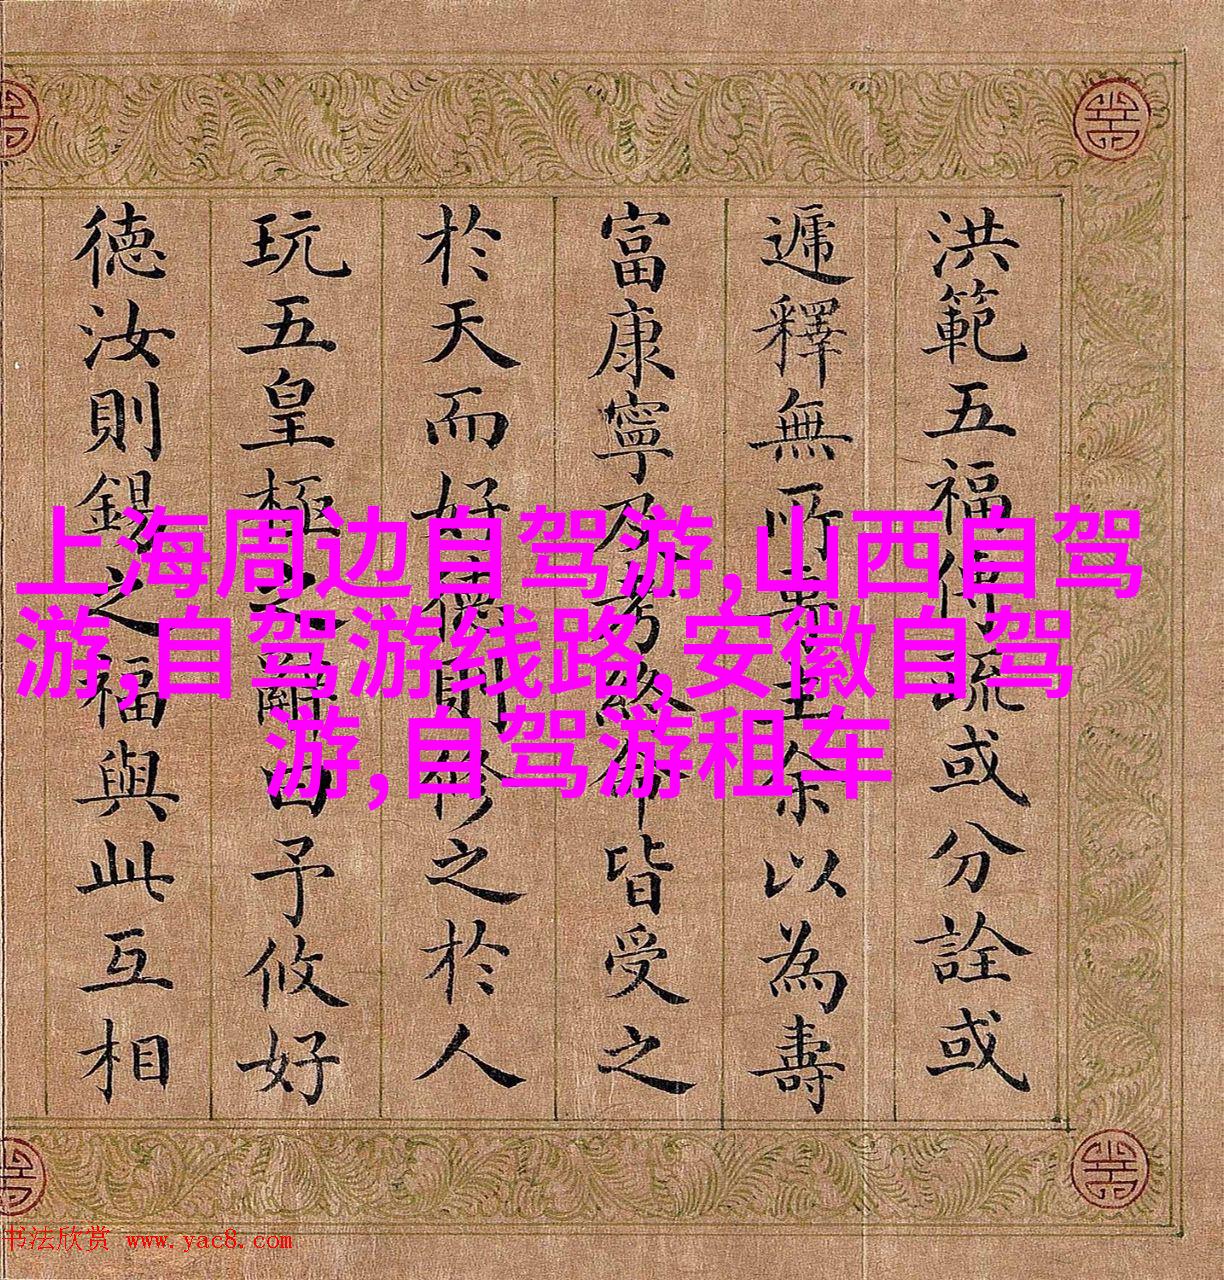 洪範五福傳疏或分詮或
遞釋無所主余以為壽
富康寧及考終命皆受之
於天而好德則修之於人
玩五皇極之辭曰予攸好
德汝則錫之福與此互相
上海周边自驾游,山西自驾
游,自驾游线路,安徽自驾
游,自驾游租车
书法欣赏 www.yac8.com